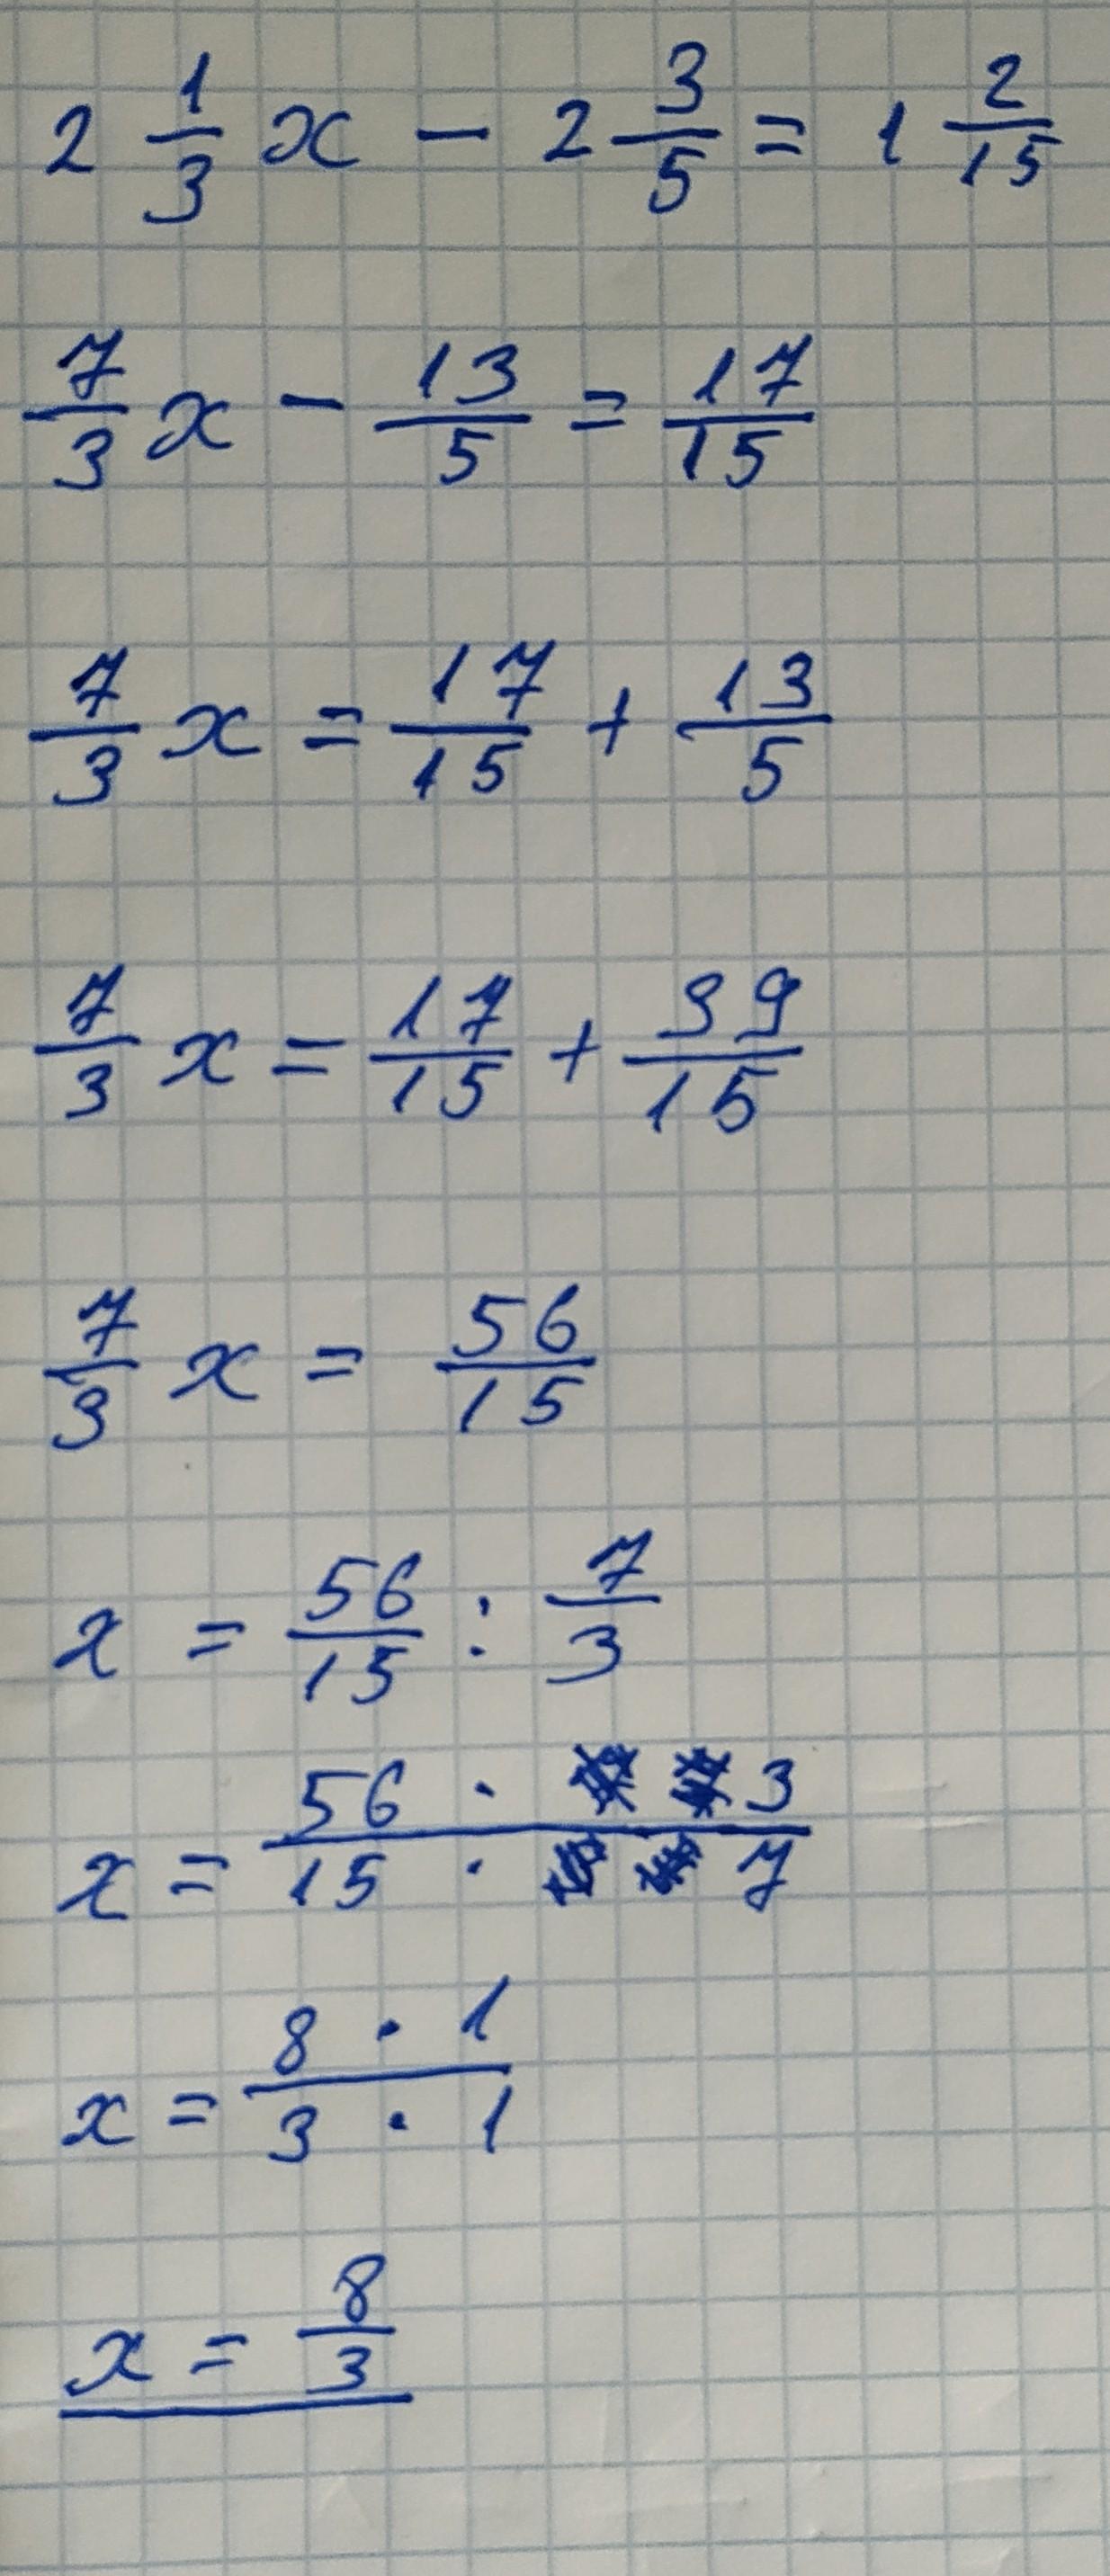 2 1/3 x - 2 3/5 = 1 2/15
7/3 x - 13/5 = 17/15
7/3 x = 17/15 + 13/5
7/3 x = 17/15 + 39/15
7/3 x = 56/15
x = 56/15 : 7/3
x = (56 · 3)/(15 · 7)
x = (8 · 1)/(3 · 1)
x = 8/3